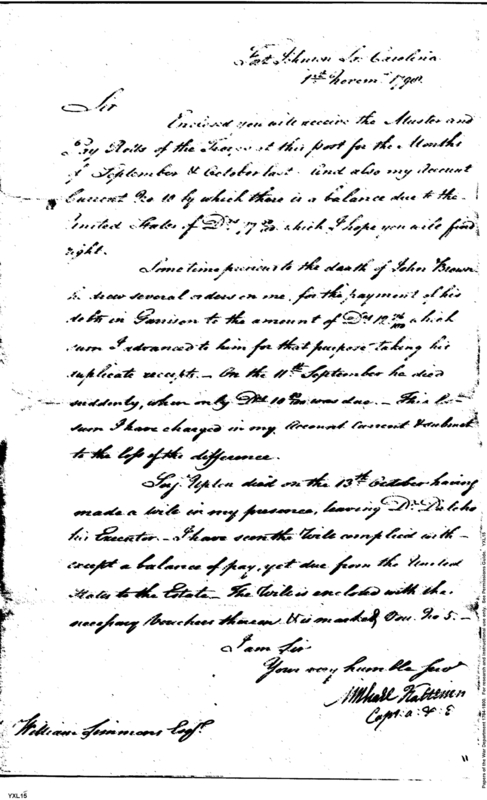 Fort Johnson So. Carolina
1st Novemr. 1798.
Sir
Enclosed you will receive the Muster and
Pay Rolls of the Troops at this post for the Months
of September & October last. And also my Account
Current No 10 by which there is a balance due to the
United States of Drs 77 which I hope you will find
right.
Sometime previous to the death of John Brown
he drew several orders on me, for the payment of his
debts in Garrison to the amount of Drs 12 which
sum I advanced to him for that purpose taking his
duplicate receipts. – On the 11th September he died
suddenly, when only Drs 10 was due – This
sum I have charged in my Account Current & submit
to the loss of the difference.
Serj. Upton died on the 13th October having
made a wile in my presence, leaving Dr. Dalcho
his Executor. – I have seen the Wile complied with –
except a balance of pay, yet due from the United
States to the Estate – The Wile is enclosed with the
necessary Vouchers thereon & is marked, Vou. No 5. –
I am Sir
Your very humble Servt
Michael Kalteisen
Capt. A. & E
William Simmons Esqr.
YXL15
Papers of the War Department 1784-1800. For research and instructional use only. See Permissions Guide. YXL15